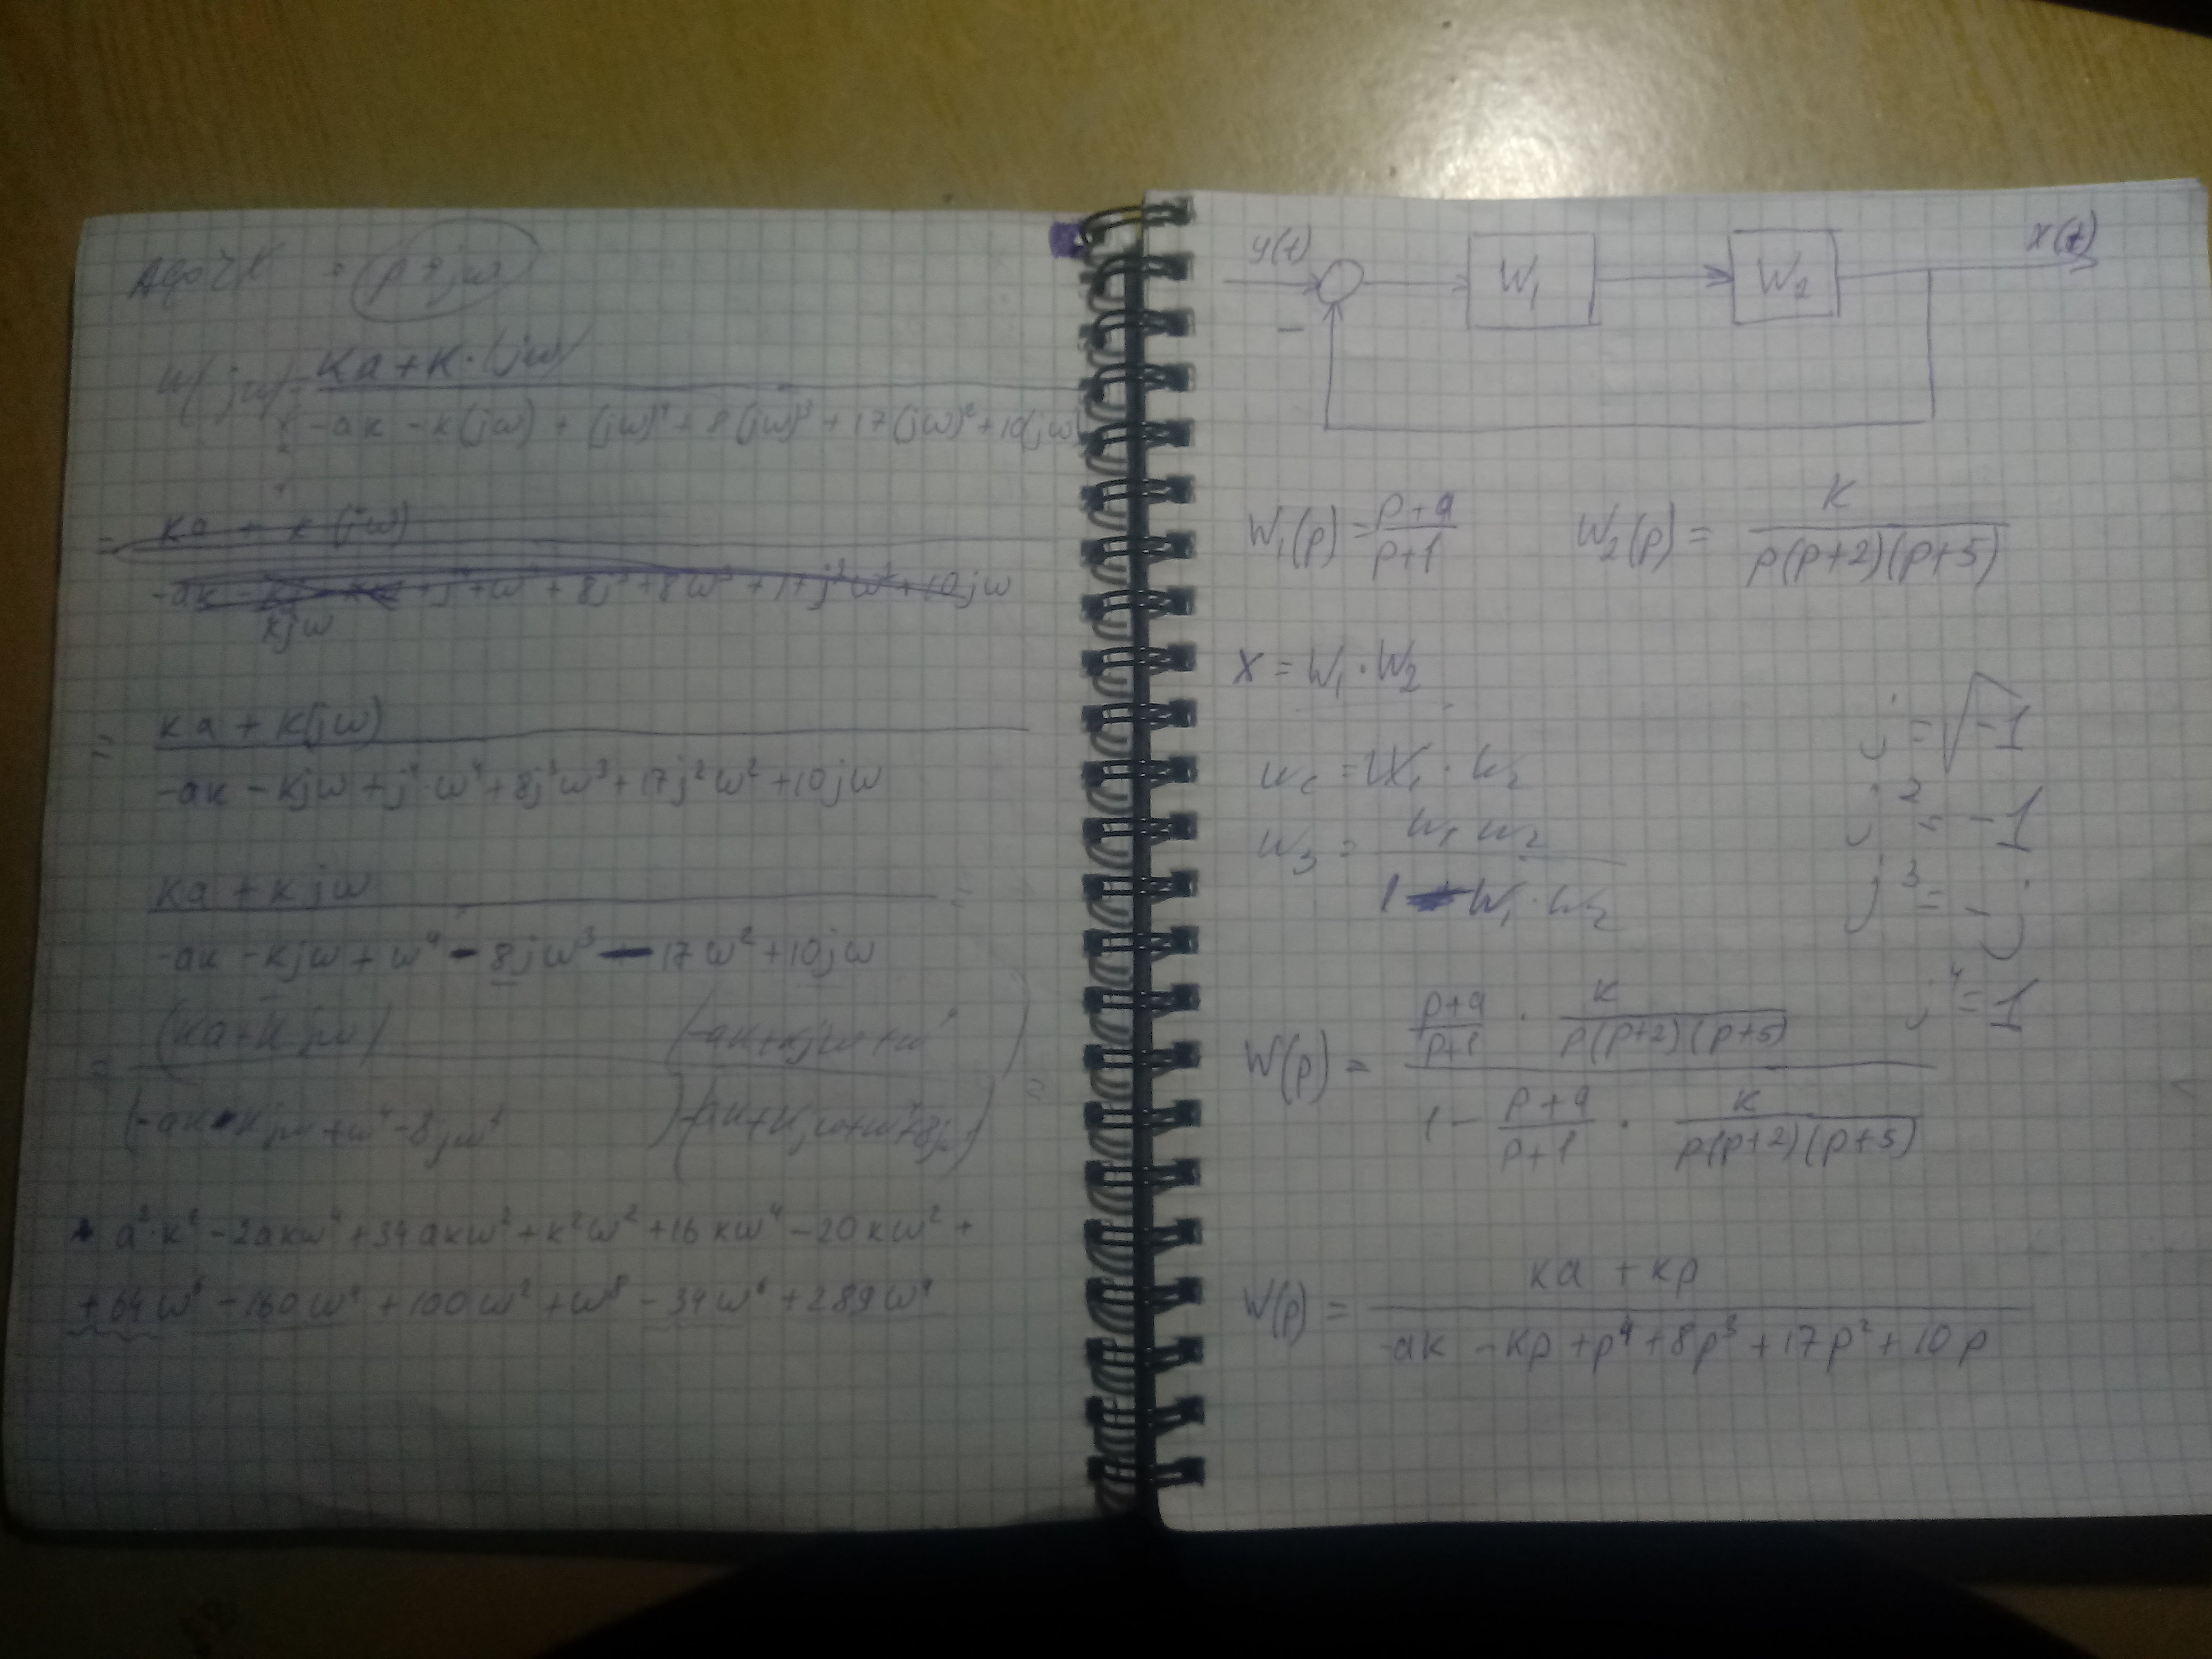 p = jω
W(jω) = Ka + K·(jω) / -ak - k(jω) + (jω)⁴ + 8(jω)³ + 17(jω)² + 10(jω)
= ka + k(jω)
kjω
= ka + k(jω) / -ак - kjω + j⁴·ω⁴ + 8j³ω³ + 17j²ω² + 10jω
ka + kjω / -ак - kjω + ω⁴ - 8jω³ - 17ω² + 10jω =
= (ka + kjω) (-ак + kjω + ω⁴
a²·k² - 2akω⁴ + 34akω² + k²ω² + 16kω⁴ - 20kω² +
+ 64ω⁶ - 160ω⁴ + 100ω² + ω⁸ - 34ω⁶ + 289ω⁴
y(t) W₁ W₂ x(t)
−
W₁(p) = p+a / p+1 W₂(p) = K / p(p+2)(p+5)
X = W₁·W₂
j = √-1
= W₁·W₂
j² = -1
W₃ = W₁ W₂ / 1 - W₁·W₂
j³ = -j
j⁴ = 1
W(p) = p+a / p+1 · K / p(p+2)(p+5) / 1 - p+a / p+1 · K / p(p+2)(p+5)
W(p) = ka + kp / -ak - kp + p⁴ + 8p³ + 17p² + 10p